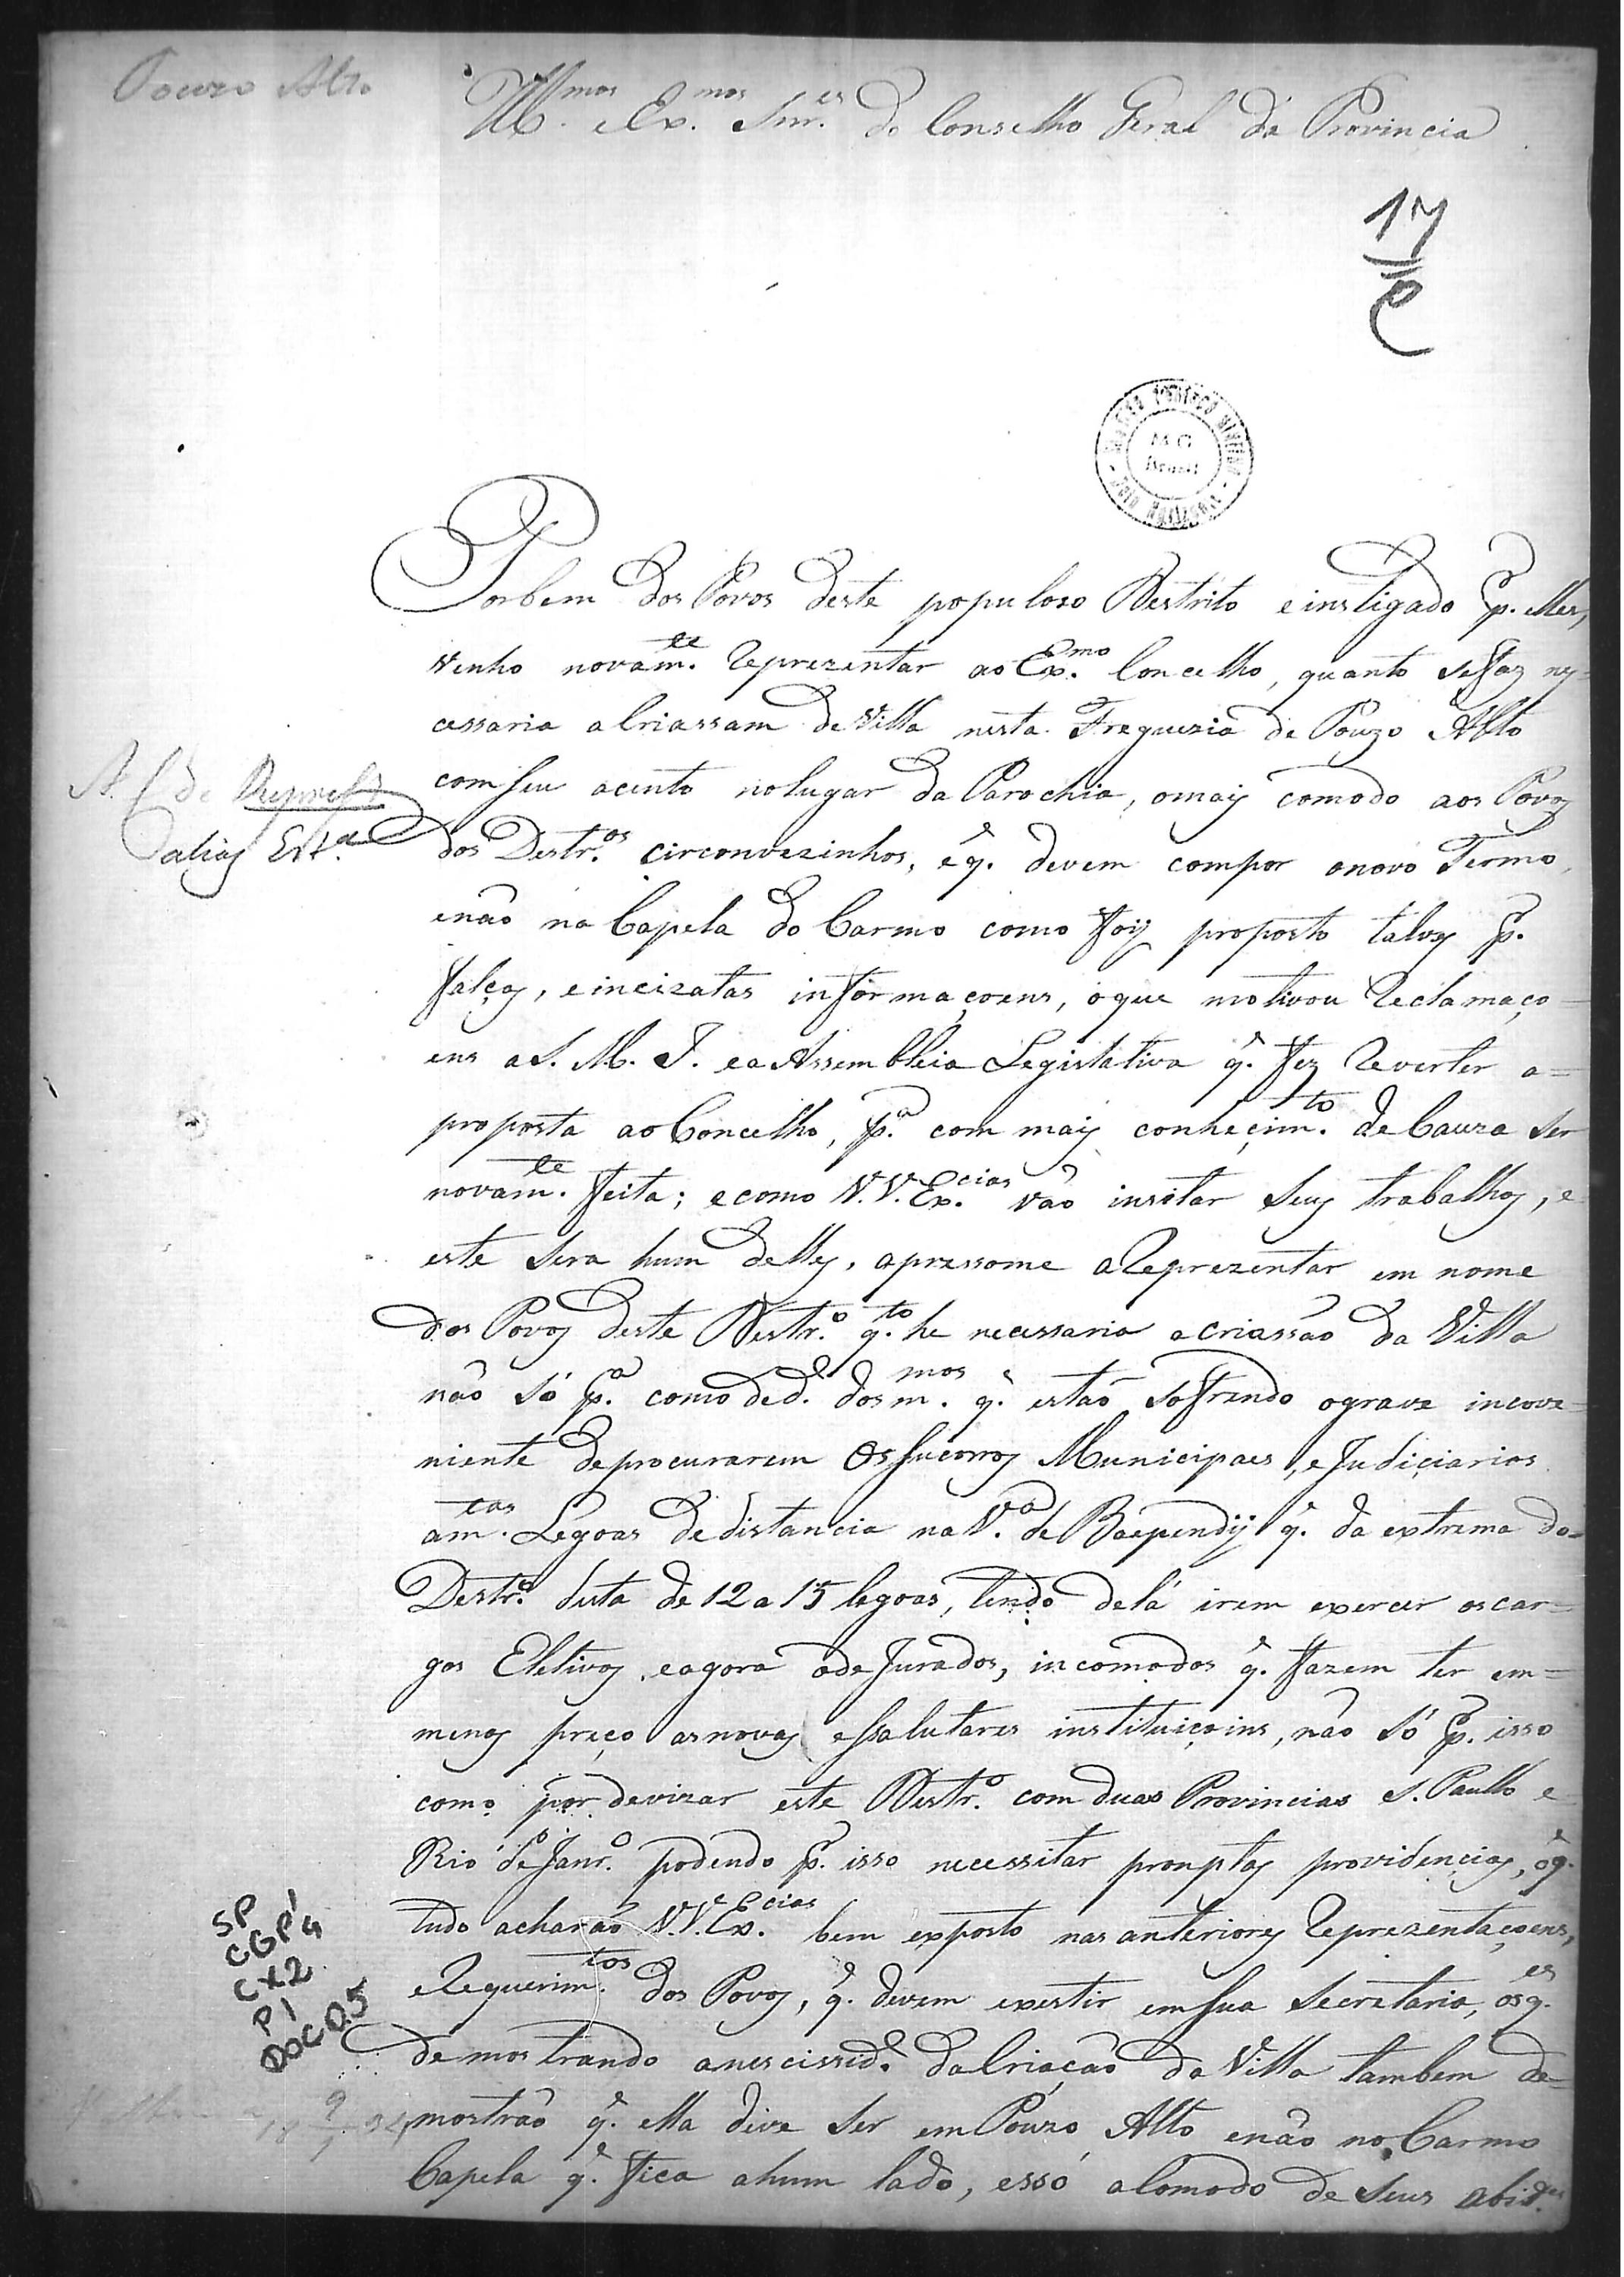 Pouzo Alto
Ill.mos e Ex.mos Snr.es do Conselho Geral da Provincia
17
ARQUIVO PÚBLICO MINEIRO
MG
Brasil
BELO HORIZONTE
Porbem dos Povos deste populoso Destrito einstigado p. elles,
venho novam.te Reprezentar ao Ex.mo Concelho, quanto sefaz ne=
cessaria aCriassam deVilla nesta Freguezia de Pouzo Alto
com seu acento nolugar da Parochia, omais comodo aos Povos
A C de Reprez
alias Est.a
dos Destr.os circonvezinhos, e q. devem compor onovo Termo,
enão na Capela do Carmo como foi proposto talvez p.
falças, eincizatas informaçoens, oque motivou Reclamaço=
ens aS. M. I. ea Assembleia Legislativa q. fez Reverter a=
proposta aoConcelho, p.a com mais conhecim.to de Cauza ser
novam.te feita; ecomo V.V. Ex.cias vão instar seus trabalhos, e
este sera hum delles, apressome aReprezentar em nome
dos Povos deste Destr.o q.to he necessaria acriassão da Villa
não só p.a comoded.e dosm.mos q. estão sofrendo ograve incove=
niente deprocurarem Os sucorros Municipaes, eJudiciarios
am.tas Legoas dedistancia naV.a de Baependij q. da extrema do=
Destr.o dista de 12 a 15 legoas, tendo delá irem exercer oscar=
gos Eletivos, eagora ode Jurados, incomodos q. fazem ter em=
menos preço asnovas esalutares instituiçoins, não só p. isso
como por devizar este Destr.o com duas Provincias S. Paullo e
Rio de Janr.o podendo p. isso necessitar promptas providencias, oq.
tudo acharão V.V. Ex.cias bem exposto nas anteriores Reprezentaçoens,
eRequerim.tos dos Povos, q. devem exestir emsua Secretaria, osq.es
demostrando anescissid.e daCriação da Villa tambem de=
mostrão q. ella dive ser emPouzo Alto enão no Carmo
Capela q. fica ahum lado, essó aComodo de seus abid.es
SP
CGP 1/4
CX2
P1
DOC 05